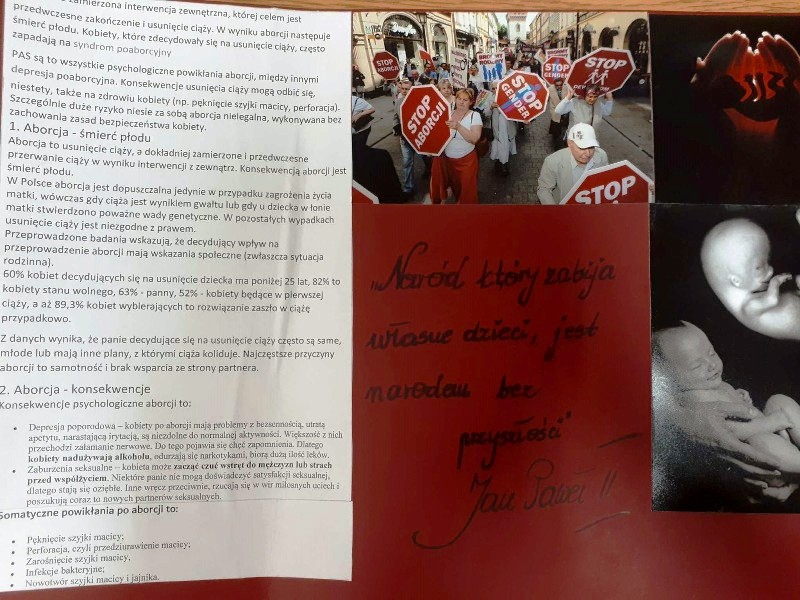 zamierzona interwencja zewnętrzna, której celem jest
przedwczesne zakończenie i usunięcie ciąży. W wyniku aborcji następuje
śmierć płodu. Kobiety, które zdecydowały się na usunięcie ciąży, często
zapadają na syndrom poaborcyjny
PAS są to wszystkie psychologiczne powikłania aborcji, między innymi
depresja poaborcyjna. Konsekwencje usunięcia ciąży mogą odbić się,
niestety, także na zdrowiu kobiety (np. pęknięcie szyjki macicy, perforacja).
Szczególnie duże ryzyko niesie za sobą aborcja nielegalna, wykonywana bez
zachowania zasad bezpieczeństwa kobiety.
1. Aborcja - śmierć płodu
Aborcja to usunięcie ciąży, a dokładniej zamierzone i przedwczesne
przerwanie ciąży w wyniku interwencji z zewnątrz. Konsekwencją aborcji jest
śmierć płodu.
W Polsce aborcja jest dopuszczalna jedynie w przypadku zagrożenia życia
matki, wówczas gdy ciąża jest wynikiem gwałtu lub gdy u dziecka w łonie
matki stwierdzono poważne wady genetyczne. W pozostałych wypadkach
usunięcie ciąży jest niezgodne z prawem.
Przeprowadzone badania wskazują, że decydujący wpływ na
przeprowadzenie aborcji mają wskazania społeczne (zwłaszcza sytuacja
rodzinna).
60% kobiet decydujących się na usunięcie dziecka ma poniżej 25 lat, 82% to
kobiety stanu wolnego, 63% - panny, 52% - kobiety będące w pierwszej
ciąży, a aż 89,3% kobiet wybierających to rozwiązanie zaszło w ciążę
przypadkowo.
Z danych wynika, że panie decydujące się na usunięcie ciąży często są same,
młode lub mają inne plany, z którymi ciąża koliduje. Najczęstsze przyczyny
aborcji to samotność i brak wsparcia ze strony partnera.
2. Aborcja - konsekwencje
Konsekwencje psychologiczne aborcji to:
• Depresja poporodowa – kobiety po aborcji mają problemy z bezsennością, utratą
apetytu, narastającą irytacją, są niezdolne do normalnej aktywności. Większość z nich
przechodzi załamanie nerwowe. Do tego pojawia się chęć zapomnienia. Dlatego
kobiety nadużywają alkoholu, odurzają się narkotykami, biorą dużą ilość leków.
• Zaburzenia seksualne – kobieta może zacząć czuć wstręt do mężczyzn lub strach
przed współżyciem. Niektóre panie nie mogą doświadczyć satysfakcji seksualnej,
dlatego stają się oziębłe. Inne wręcz przeciwnie, rzucają się w wir miłosnych uciech i
poszukują coraz to nowych partnerów seksualnych.
Somatyczne powikłania po aborcji to:
• Pęknięcie szyjki macicy;
• Perforacja, czyli przedziurawienie macicy;
• Zarośnięcie szyjki macicy,
• Infekcje bakteryjne;
• Nowotwór szyjki macicy i jajnika.
STOP
ABORCJI
STOP
ABORCJI
STOP
GENDER
STOP
STOP
STOP
„Naród który zabija
własne dzieci, jest
narodem bez
przyszłości"
Jan Paweł II